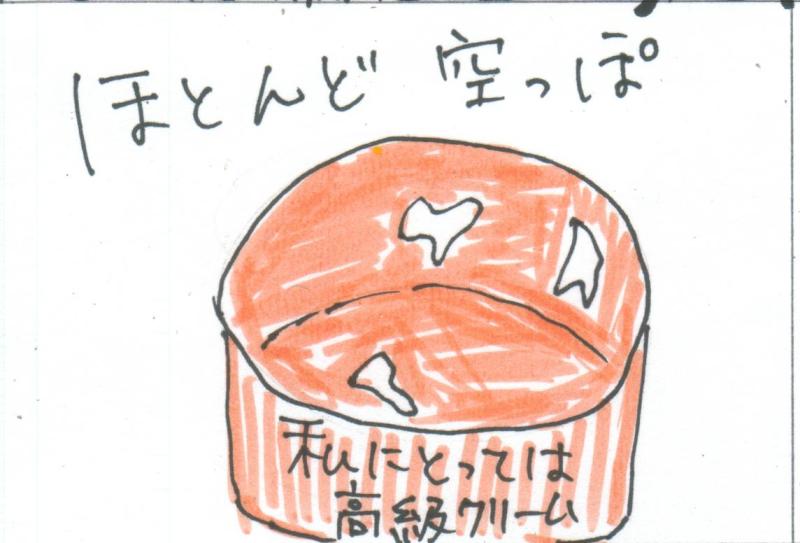 ほとんど 空っぽ
私にとっては
高級クリーム